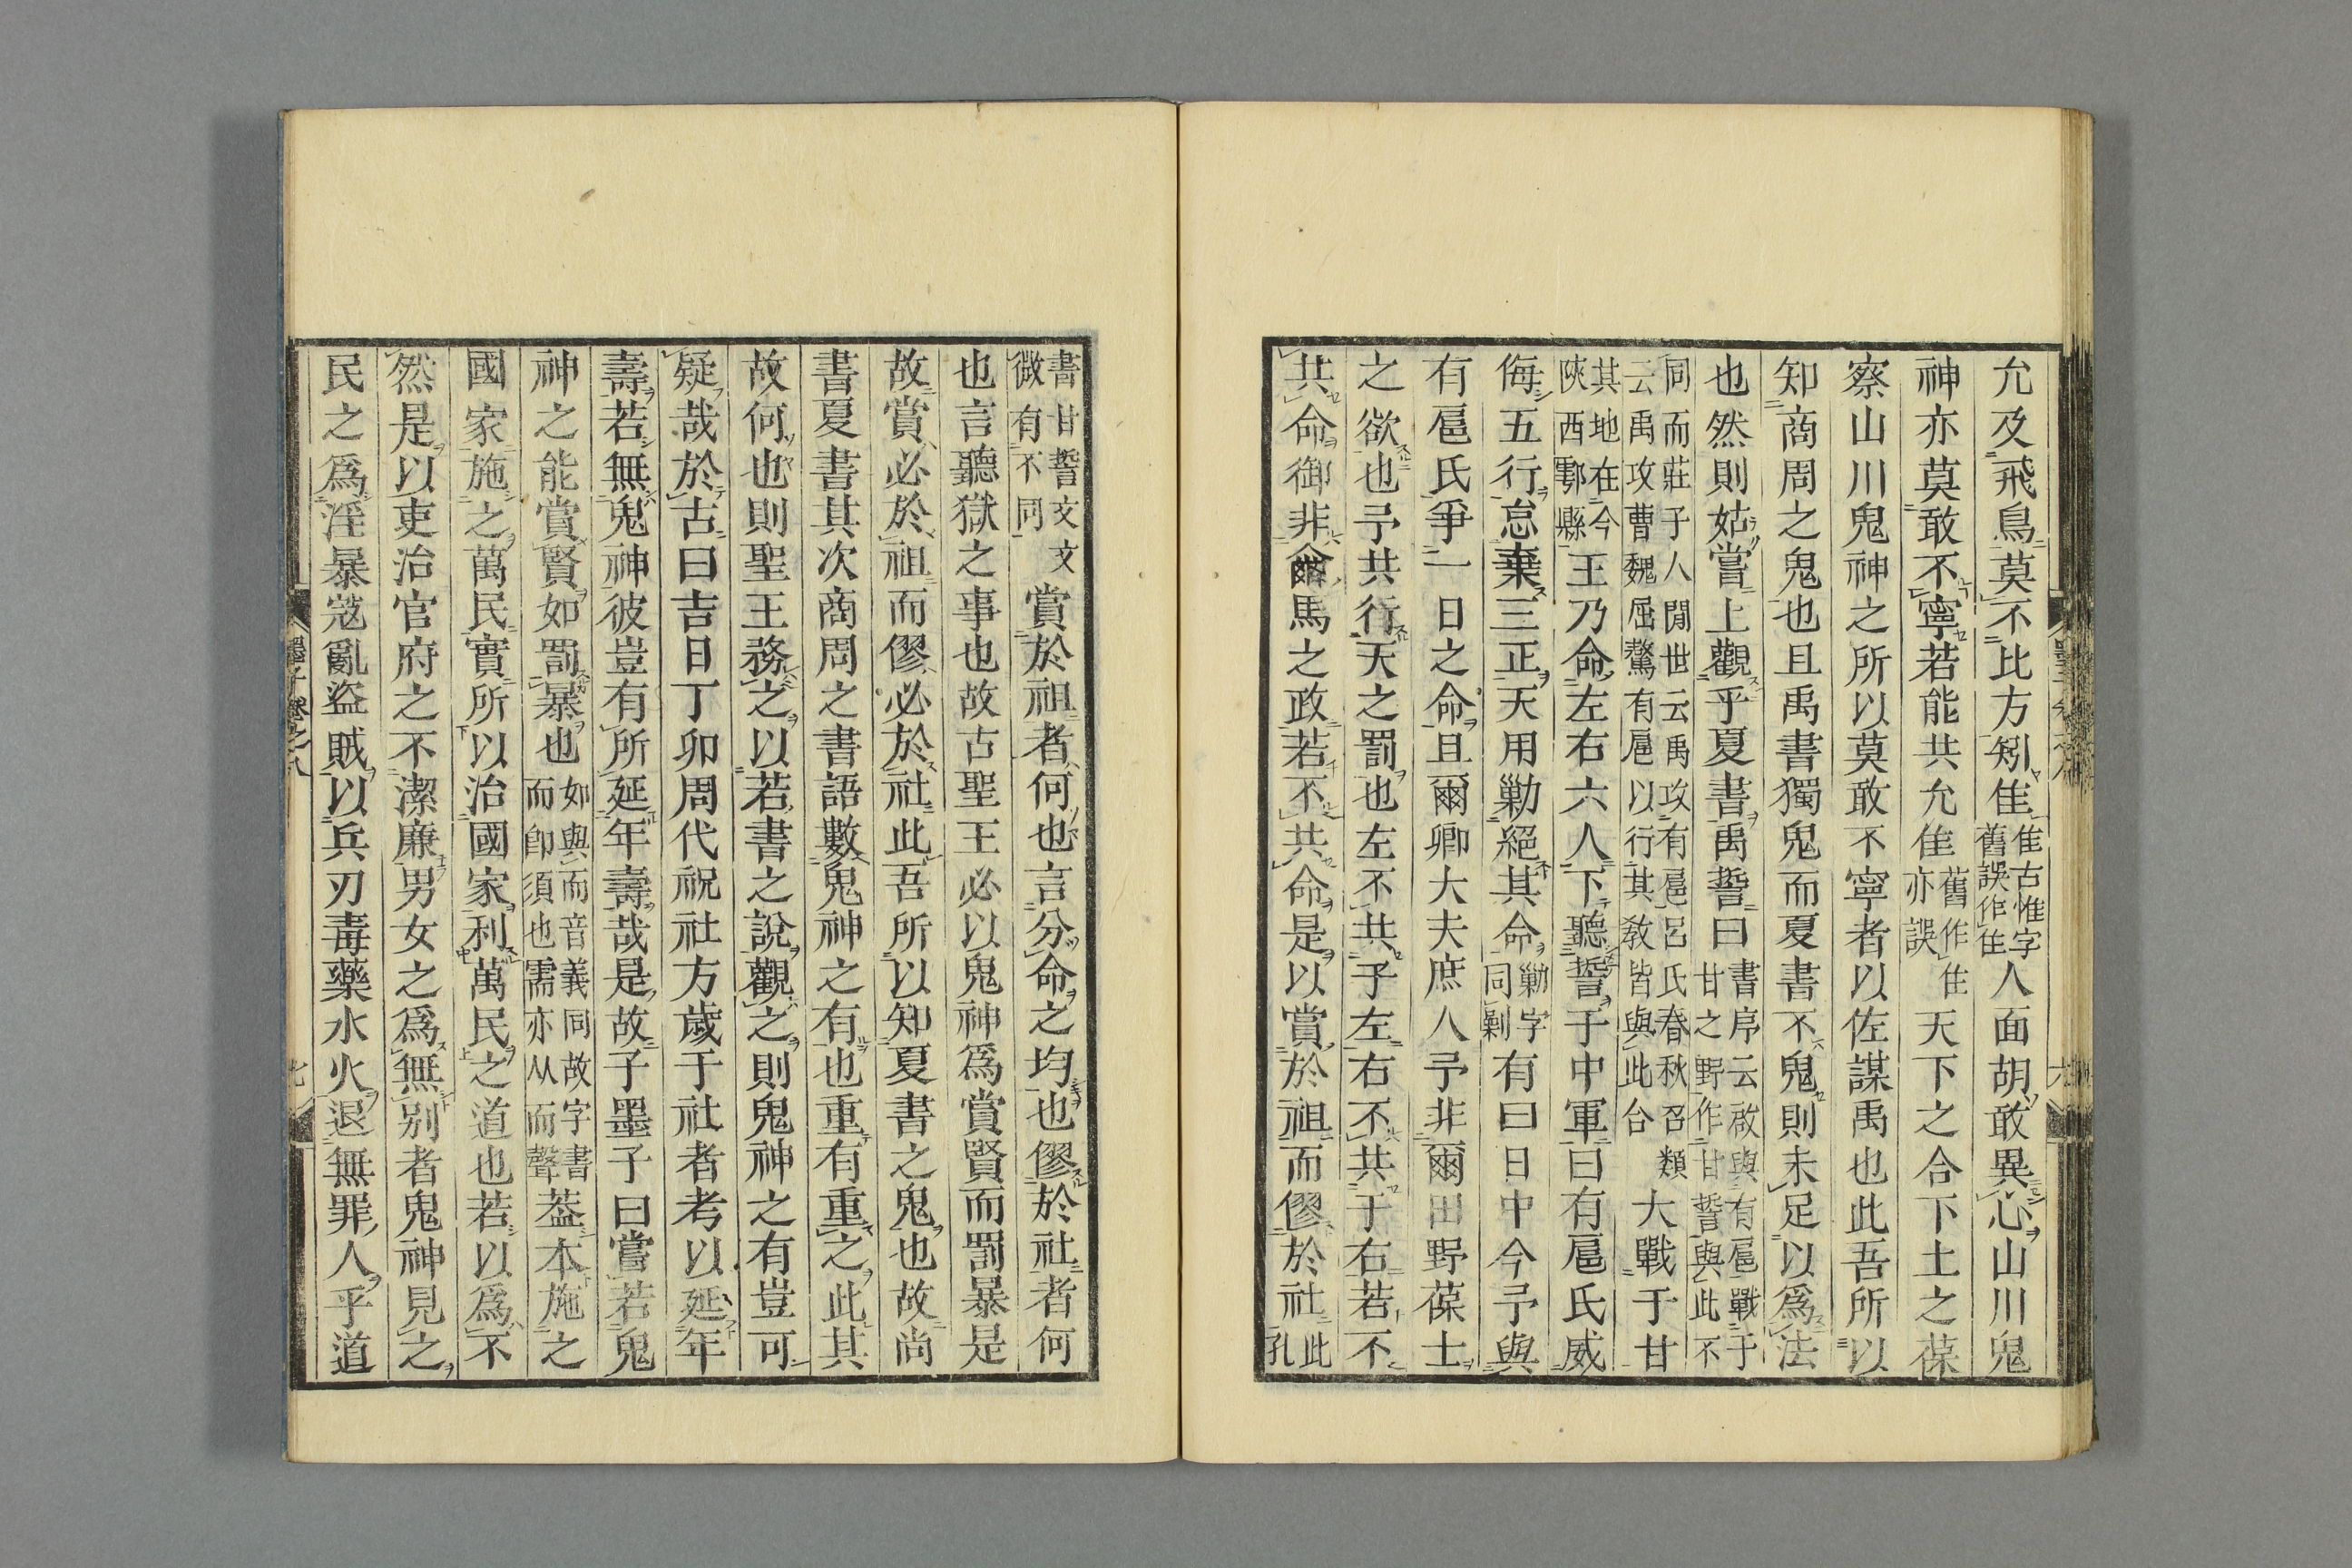 允及飛鳥莫不比方矧隹隹古惟字舊誤作住人面胡敢異心山川鬼
神亦莫敢不寧若能共允隹舊作住亦誤天下之合下土之葆
察山川鬼神之所以莫敢不寧者以佐謀禹也此吾所以
知商周之鬼也且禹書獨鬼而夏書不鬼則未足以爲法
也然則姑嘗上觀乎夏書禹誓曰書序云啟與有扈戰于甘之野作甘誓與此不
同而莊子人閒世云禹攻有扈呂氏春秋召類云禹攻曹魏屈驁有扈以行其敎皆與此合大戰于甘
其地在今陝西鄠縣王乃命左右六人下聽誓于中軍曰有扈氏威
侮五行怠棄三正天用勦絕其命勦字同剿有曰日中今予與
有扈氏爭一日之命且爾卿大夫庶人予非爾田野葆士
之欲也予共行天之罰也左不共于左右不共于右若不
共命御非爾馬之政若不共命是以賞於祖而僇於社此孔
書甘誓文文微有不同賞於祖者何也言分命之均也僇於社者何
也言聽獄之事也故古聖王必以鬼神爲賞賢而罰暴是
故賞必於祖而僇必於社此吾所以知夏書之鬼也故尚
書夏書其次商周之書語數鬼神之有也重有重之此其
故何也則聖王務之以若書之說觀之則鬼神之有豈可
疑哉於古曰吉日丁卯周代祝社方歲于社者考以延年
壽若無鬼神彼豈有所延年壽哉是故子墨子曰嘗若鬼
神之能賞賢如罰暴也如與而音義同故字書而卽須也需亦从而聲葢本施之
國家施之萬民實所以治國家利萬民之道也若以爲不
然是以吏治官府之不潔廉男女之爲無别者鬼神見之
民之爲淫暴寇亂盜賊以兵刃毒藥水火退無罪人乎道
墨子卷之八
七